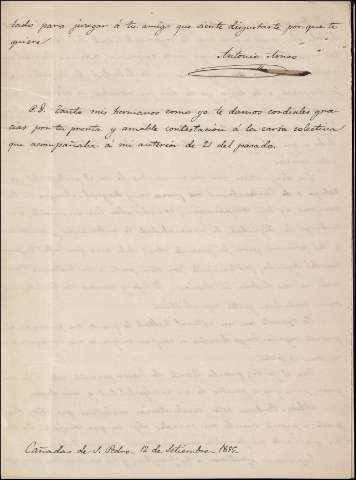 tado para juzgar á tu amigo que siente disgustarte, por que te
quiere
Antonio Alonso
P.D. Tanto mis hermanos como yo te damos cordiales gra-
cias por tu pronta y amable contestacion á la carta colectiva
que acompañaba á mi anterior de 21 del pasado.
Cañadas de S. Pedro. 12 de Setiembre